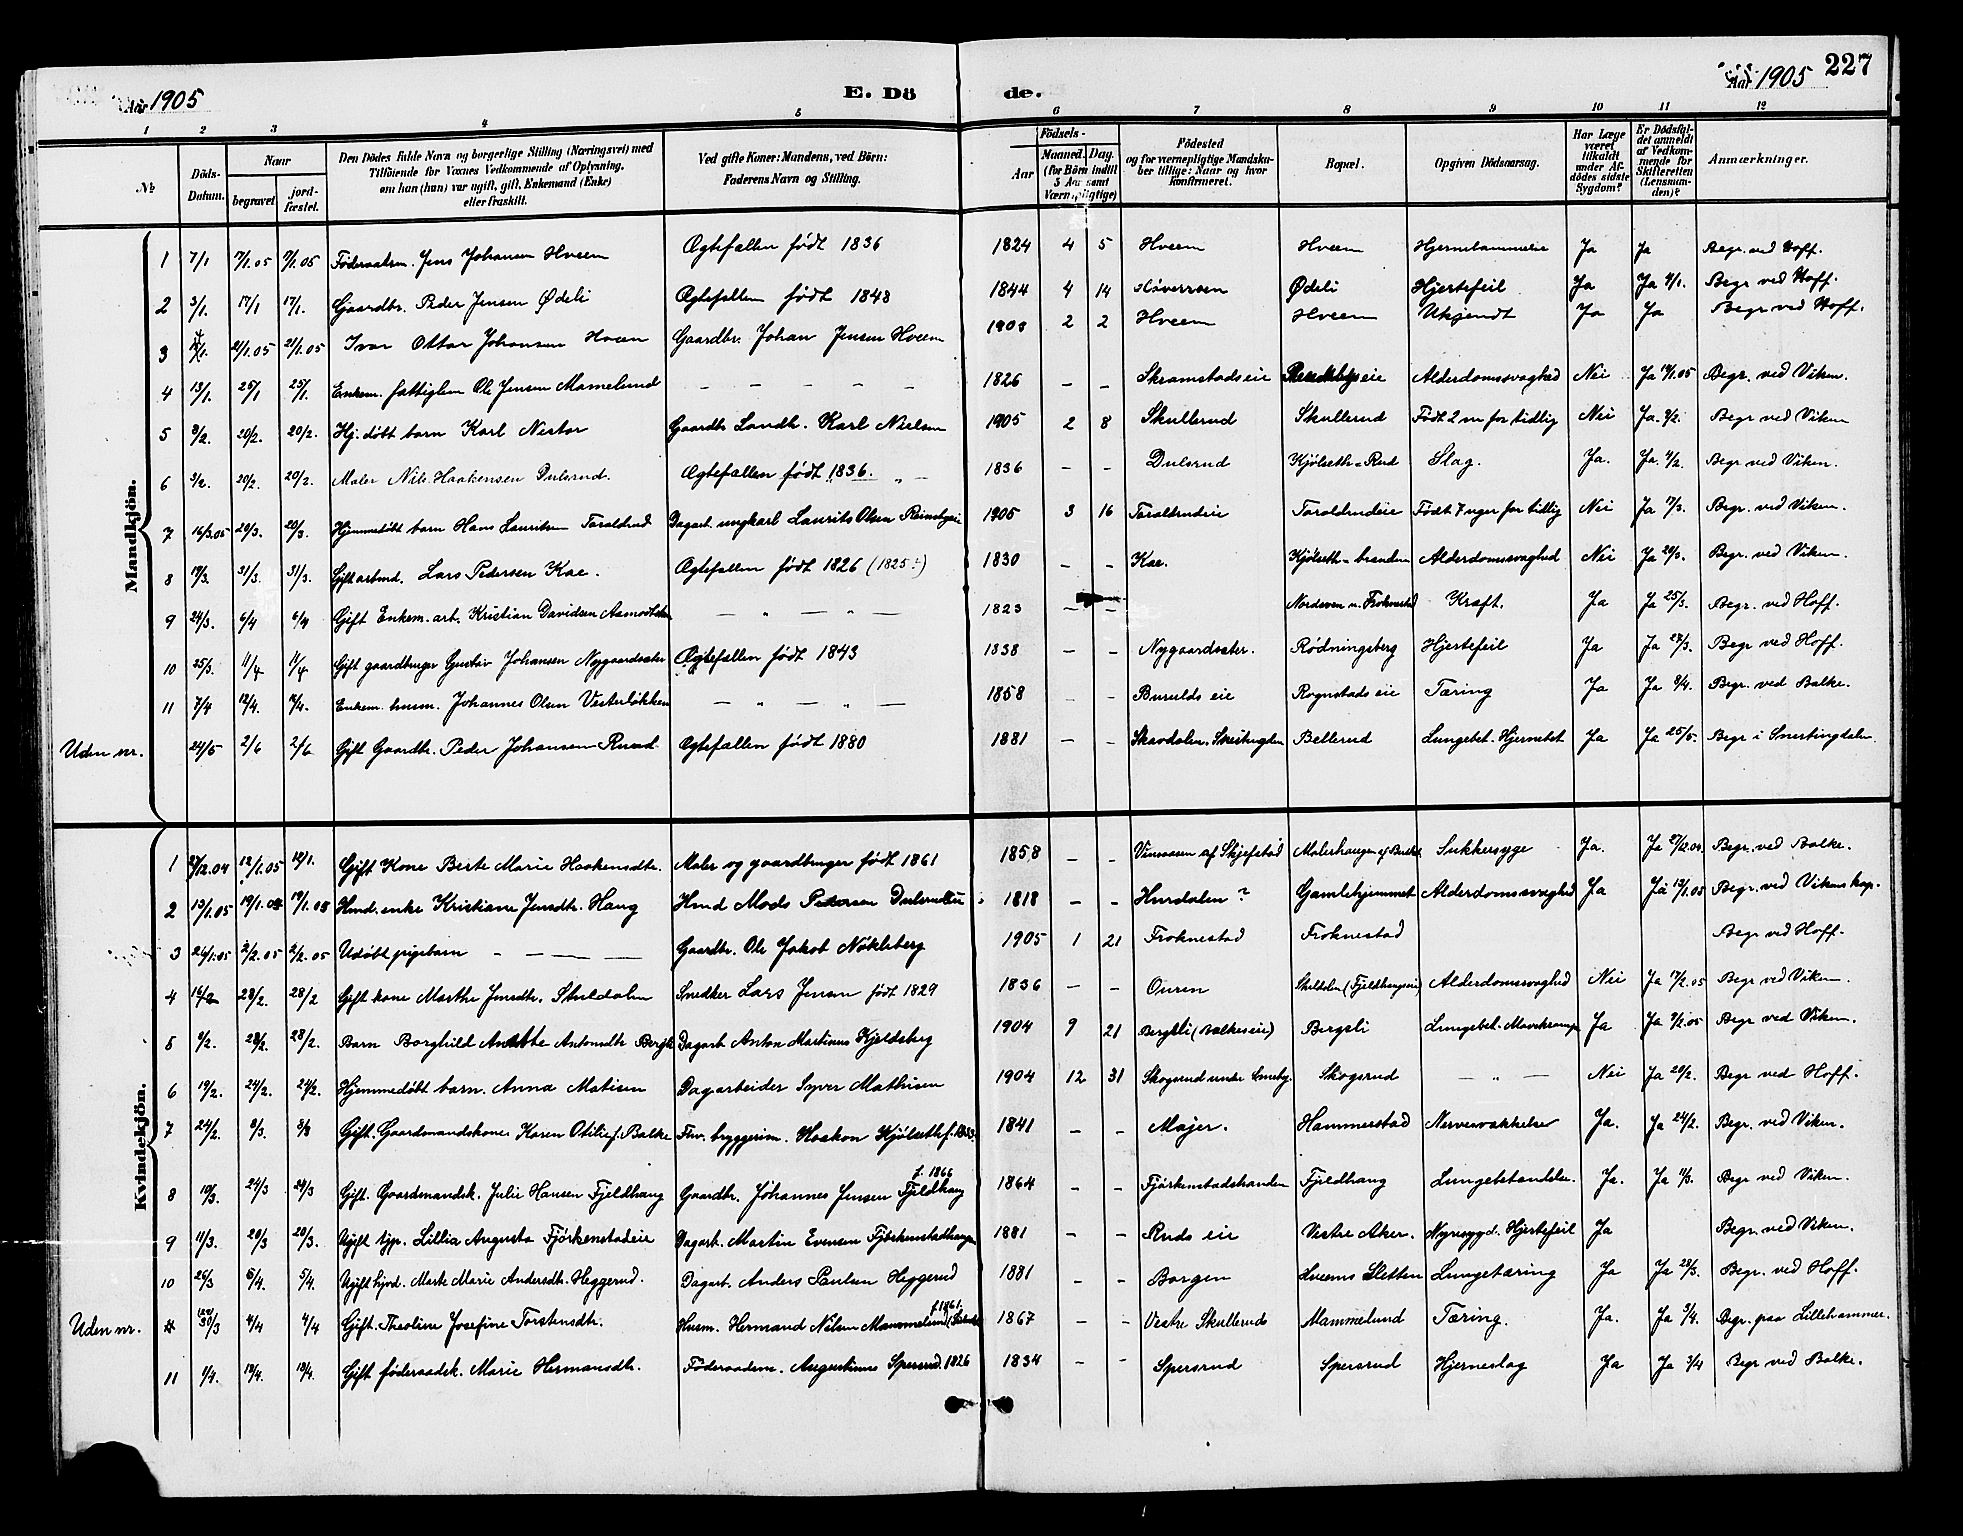 Aar 1905 E. Dö de. Aar 1905 227
1 2 3 4 5 6 7 8 9 10 11 12
№ Döds-Datum. Naar begravet jord-fæstet. Den Dödes fulde Navn og borgerlige Stilling (Næringsvei) med Tilföiende for Voxnes Vedkommende af Oplysning, om han (hun) var ugift, gift, Enkemand (Enke) eller fraskilt. Ved gifte Koner: Mandens, ved Börn: Faderens Navn og Stilling. Födsels- Aar Maaned. Dag. (for Börn indtil 5 Aar samt Værnepligtige) Födested og for værnepligtige Mandska-ber tillige: Naar og hvor konfirmeret. Bopæl. Opgiven Dödsaarsag. Har Læge været tilkaldt under Af-dödes sidste Sygdom? Er Dödsfal-det anmeldt af Vedkom-mende for Skifteretten (Lensman-den)? Anmærkninger.
Mandkjön.
1 7/1 7/1.05 7/1.05 Föderaadsm. Jens Johansen Hveem Ægtefællen født 1836 1824 4 5 Hveem Hveem Ja Ja Begr. ved Hoff.
2 3/1. 17/1 17/1. Gaardbr. Peder Jensen Ødeli Ægtefællen født 1848 1844 4 14 Ødeli Hjertefeil Ja Ja 4/1. Begr. ved Hoff.
3 21/1.05 21/1.05 Ivar Ottar Johansen Hveem Gaardbr. Johan Jensen Hveem 2 2 Hveem Hveem Ukjendt Ja Ja Begr. ved Hoff.
4 13/1. 25/1 25/1. Enkem. fattiglem Ole Jensen Mamelund – – – – – 1826 – – Skramstadseie Alderdomssvaghed Nei Ja Begr. ved Viken.
5 8/2. 20/2. 20/2. Hj. döbt barn Karl Nestor Gaardbr Landh. Karl Nielsen 1905 2 8 Skullerud Skullerud Født 2 m for tidlig Nei Ja. 9/2. Begr. ved Viken
6 3/2. 20/2. 20/2. Maler Nils Haakensen Dulsrud. Ægtefællen født 1836. 1836 – – Dulsrud Kjølseth-Rud Slag. Ja. Ja. 4/2. Begr. ved Viken.
7 16/3.05 29/3. 29/3. Hjemmedöbt barn Hans Lauritsen Taralsrud Dagarb. ungkarl Laurits Olsen 1905 3 16 Taralsrudeie Taralsrudeie Født 7 uger for tidlig Nei Ja 17/3. Begr. ved Viken.
8 19/3. 31/3. 31/3. Gift arbmd. Lars Pedersen Kae. Ægtefællen født 1826 (1825?) 1830 – – Kae. Kjølseth-branden Alderdomssvaghed Nei Ja 20/3. Begr. ved Viken.
9 24/3. 6/4 6/4 Gift Enkem. arb. Kristian Davidsen – " – " – 1823 – – Kræft. Ja Ja 25/3. Begr. ved Hoff.
10 25/3. 11/4 11/4 Gift gaardbruger Gustav Johansen Nygaardsæter Ægtefællen født 1843 1838 – – Nygaardsæter. Rødningsberg Hjertefeil Ja Ja 27/3. Begr ved Hoff.
11 7/4 12/4. Enkem. husm. Johannes Olsen Vesterløkken – " – " – 1858 – – Burulds eie Rognstads eie Tæring Ja Ja 8/4. Begr. ved Balke.
Uden nr. 24/5 2/6 2/6 Gift Gaardbr. Peder Johansen Ruud. Ægtefællen født 1880 1881 – – Bellerud Lungebet. Hjernebet Ja Ja 25/5. Begr i Snertingdalen
Kvindekjön.
1 27/12.04 12/1.05 12/1. Gift Kone Berte Marie Haakensdtr. Maler og gaardbruger født 1861 1858 – – Vinnaasen af Skjefstad Sukkersyge Ja. Ja 27/12.04. Begr. ved Balke.
2 13/1.05 19/1.05 19/1.05 Hmd. enke Kristiane Jensdtr. Haug Hmd Mads Pedersen 1818 – – Hurdalen ? Gamlehjemmet Alderdomssvaghed Ja Ja 13/1.05 Begr. ved Vikens kap.
3 24/1.05 2/2.05 2/2.05 Udöbt pigebarn – – – – Gaardbr. Ole Jakob Nøkleberg 1905 1 21 Froknestad Froknestad Begr ved Hoff.
4 16/2 28/2. 28/2 Gift kone Marthe Jensdtr. Skuldalen Snedker Lars Jensen født 1829 1836 – – Ouren Alderdomssvaghed Nei Ja 17/2.05 Begr. ved Viken
5 9/2. 28/2. 28/2. Barn Borghild Anette Antonsdtr Bergli Dagarb Anton Martinus Kjeldsberg 1904 9 21 Bergsli (Balkeseie) Bergsli Lungebet. Mavekrampe Ja Ja 9/2.05 Begr ved Viken.
6 19/2. 24/2. 24/2. Hjemmedöbt barn. Anna Matisen Dagarbeider Syver Mathisen 1904 12 31 Skogsrud under Skogsrud – " – Nei Ja 20/2. Begr ved Hoff.
7 24/2. 8/3. 8/3 Gift. Gaardmandskone Karen Otilie f. Balke Fhv. bryggerim. Haakon Kjølseth 1841 – – Majer. Hammerstad Nervesvækkelse Ja. Ja 24/2. Begr. ved Viken.
8 10/3. 24/3 24/3 Gift. Gaardmandsk. Julie Hansen Fjeldhaug Gaardbr. Johannes Jensen Fjeldhaug f. 1866 1864 – – Fjørkenstadshanden Fjeldhaug Ja. Ja 11/3. Begr ved Viken.
9 11/3. 20/3 20/3. Ugift tjp. Lillia Augusta Fjørkenstadeie Dagarb. Martin Evensen 1881 – – Ruds eie Vestre Aker. Nyresygd. Hjertefeil Ja Begr. ved Viken.
10 26/3 5/4. 5/4. Ugift hjvd. Marte Marie Andersdtr. Heggerud. Dagarb. Anders Paulsen Heggerud 1881 – – Borgen Hveems Sletten Lungetæring Ja Ja 28/3. Begr. ved Hoff.
Uden nr. 30/3 4/4 4/4 Gift. Theoline Josefine Torstensdtr. Husm. Hermand Nilsen Mammelund f. 1861. 1867 – – Vestre Skulleruds Mammelund Tæring. Ja. Ja 3/4. Begr. paa Lillehammer.
11 1/4. 13/4. 13/4. Gift föderaadsk. Marie Hermansdtr. Föderaadsm. Augustinus Spersrud. 1826 1834 – – Spersrud Spersrud Hjerneslag Ja Ja 3/4 Begr ved Balke.